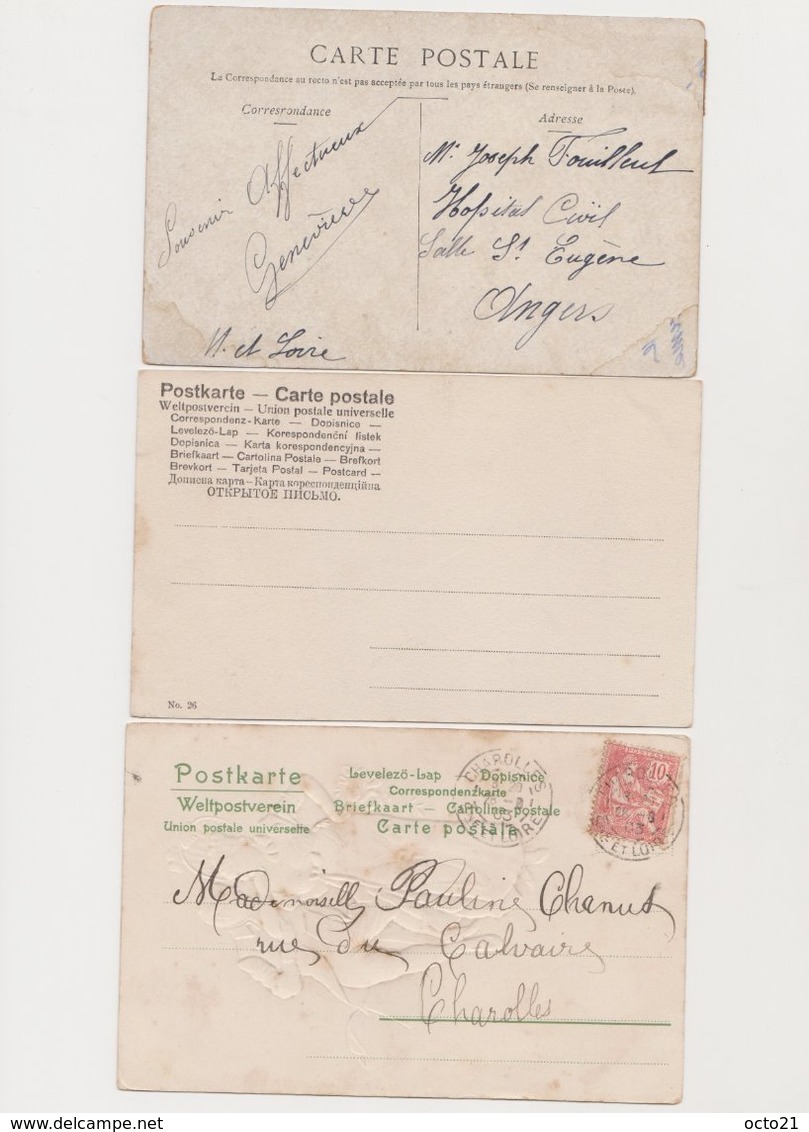 CARTE POSTALE
La Correspondance au recto n'est pas acceptée par tous les pays étrangers (Se renseigner à la Poste).
Correspondance
Adresse
Souvenir Affectueux
Geneviève
Mr Joseph Fouilleul
Hopital Civil
Salle St Eugène
Angers
M. et Loire
Postkarte — Carte postale
Weltpostverein — Union postale universelle
Correspondenz-Karte — Dopisnice —
Levelező-Lap — Korespondenční lístek
Dopisnica — Karta korespondencyjna —
Briefkaart — Cartolina Postale — Brefkort
Brevkort — Tarjeta Postal — Postcard —
Дописна карта — Карта кореспонденційна
ОТКРЫТОЕ ПИСЬМО.
No. 26
Postkarte
Weltpostverein
Union postale universelle
Levelező-Lap Dopisnice
Correspondenzkarte
Briefkaart — Cartolina postale
Carte postale
CHAROLLES
ET LOIRE
10
ET LOIRE
Mademoiselle Pauline Chanut
rue du Calvaire
Charolles
octo21